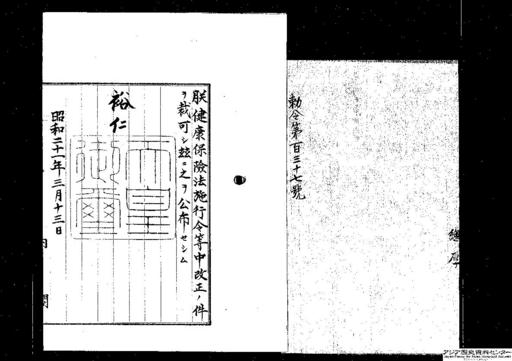 勅令第百三十七號
朕健康保險法施行令等中改正ノ件
ヲ裁可シ玆ニ之ヲ公布セシム
裕仁
天皇御璽
昭和二十一年三月十三日
内閣
アジア歴史資料センター